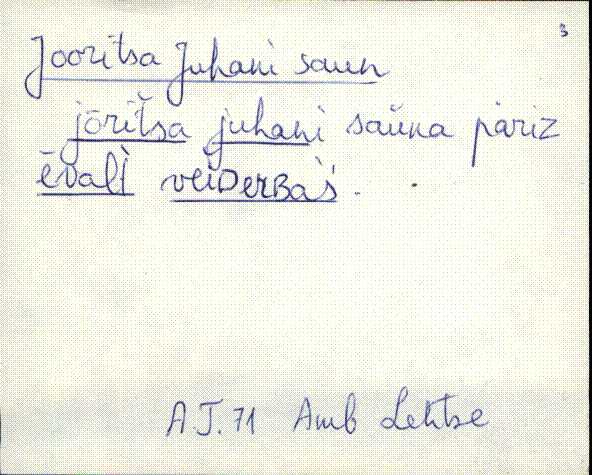 3
Jooritsa Juhani saun
jōriťsa juhani saũna päriz
ēvalt
A J. 71 Amb Lehtse